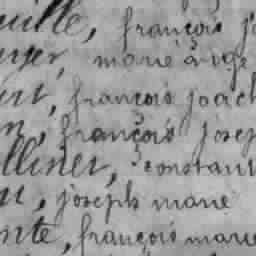 uille, françois j
uyer, marie ange
urt, françois joach
n, françois josep
lliner, constant
u, joseph marie
nte, françois marie